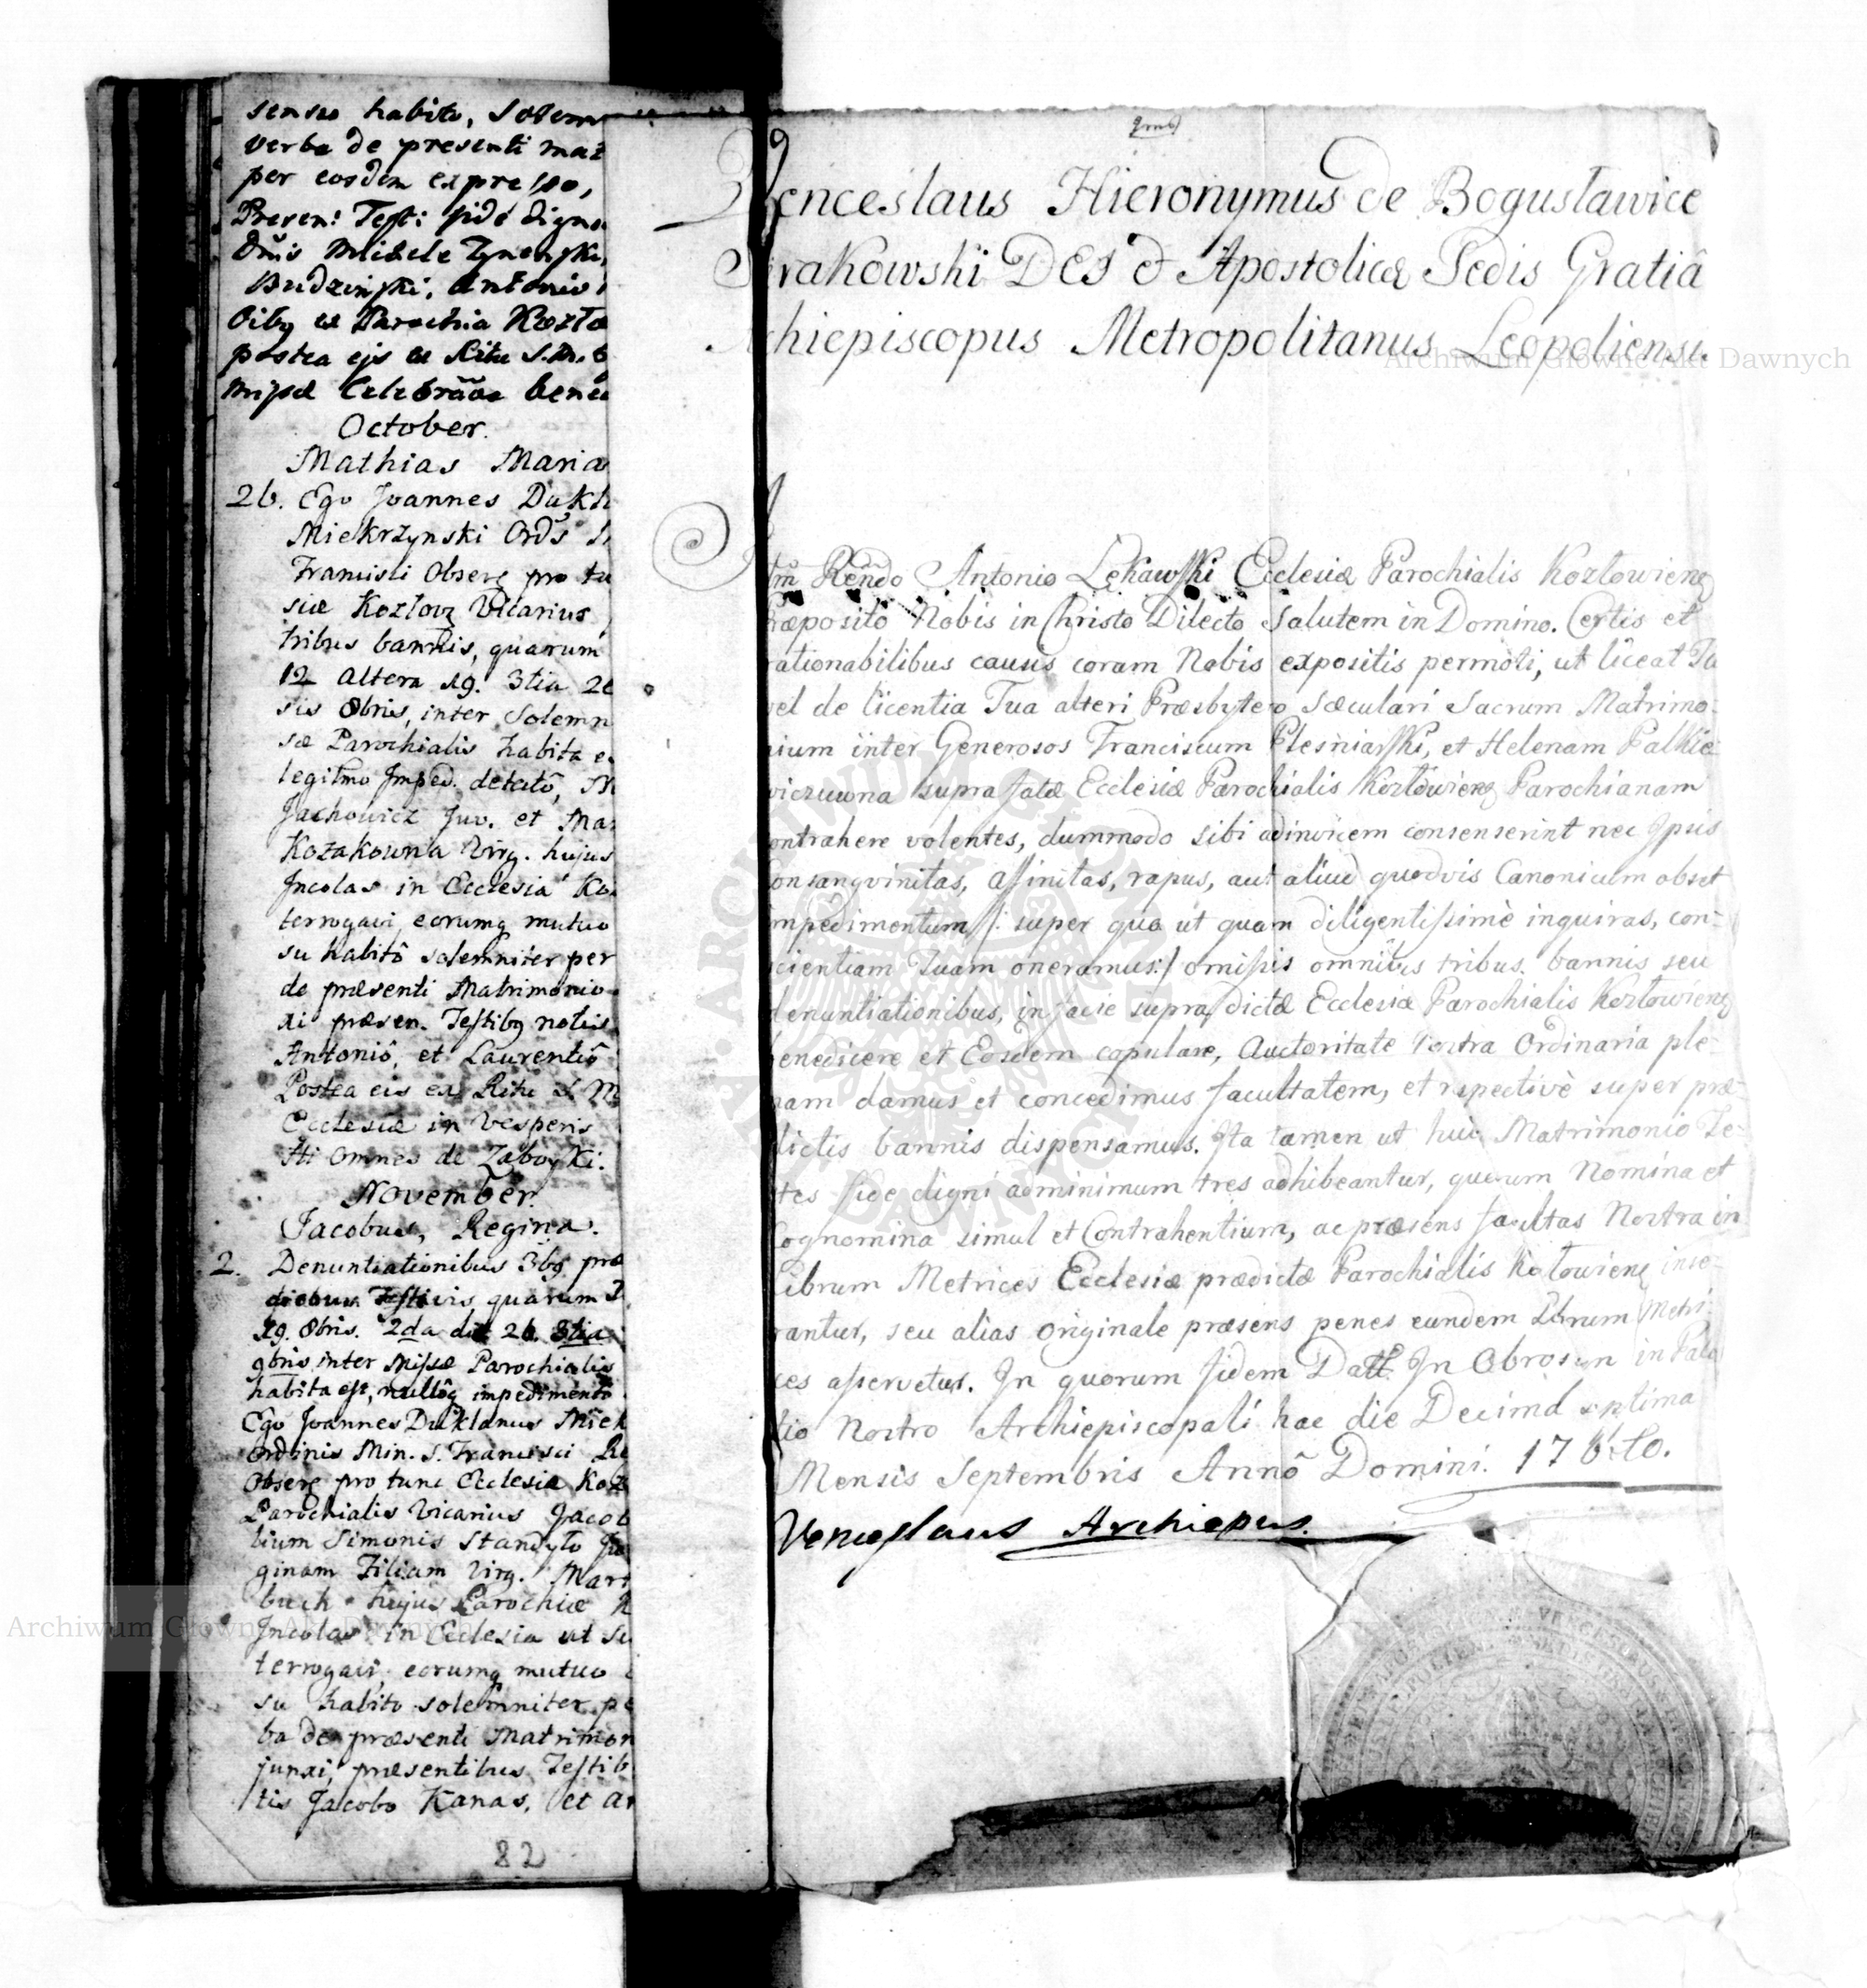 sensu habito, Solem
verba de presenti mat
per eosdem expresso,
Presen: Testi: fide digno
Dnis Michele
Budzinski, Antonio
oibq ex Parochia Kozlo
postea ejs ex Ritu S. M. E
Missæ Celebrãoe bene
October.
Mathias Maria
26. Ego Joannes Dukl
Miekrzynski Ords S.
Francisci Observ pro tu
siæ Kozlov Vicarius
tribus bannis, quarum
12 altera 19. 3tia 26
sis 8bris, inter Solemn
sæ Parochialis habita e
legitmo Imped. detectô, M
Jachowicz Juv. et Mar
Kozakowna Virg. hujus
Incolas in Ecclesia Ko
terrogavi, eorumq mutuo
su habitô solemniter per
de præsenti Matrimonio
xi præsen. Testibq notis
Antoniô, et Laurentiô
Postea eis ex Ritu S. M
Ecclesiæ in Vesperis
tti omnes de Zaboyki.
November.
Jacobus, Regina.
2. Denuntiationibus 3bq præ
diebus Festivis, quarum I
19. 8bris. 2da die 26. 3tia
9bris inter Missæ Parochialis
habita est, nullôq impedimentô
Ego Joannes Duklanus Miek
Ordinis Min. S. Francisci Re
Observ pro tunc Ecclesiæ Koz
Parochialis Vicarius Jacob
lium Simonis Standyło Ju
ginam Filiam Virg. Mart
buch hujus Parochiæ K
Incolas in Ecclesia ut su
terrogavi, eorumq mutuo
su habito solemniter pe
ba de præsenti Matrimon
junxi, præsentibus Testib
tis Jacobo Kanas, et An
82
Wenceslaus Hieronymus de Bogusławice
Sirakowski DEI & Apostolicæ Sedis Gratiâ
chiepiscopus Metropolitanus Leopoliensis
Rendo Antonio Lękawski Ecclesiæ Parochialis Kozłowieng
ræposito Nobis in Christo Dilecto Salutem in Domino. Certis et
rationabilibus causis coram Nobis expositis permoti, ut liceat Tibi
vel de licentia Tua alteri Præsbytero Sæculari Sacrum Matrimo-
nium inter Generosos Franciscum Plesniarski, et Helenam Palkie
viczuwna supra fatæ Ecclesiæ Parochialis Kozłowieng Parochianam
ontrahere volentes, dummodo sibi adinvicem consenserint nec Ipsis
onsangvinitas, affinitas, rapus, aut aliud quodvis Canonicum obset
mpedimentum /: super quo ut quam diligentissimè inquiras, con-
cientiam Tuam oneramus:/ omissis omnibus tribus bannis seu
denuntiationibus, in facie supra dictæ Ecclesiæ Parochialis Kozłowieng
benedicere et Eosdem copulare, Auctoritate Nostra Ordinaria ple-
nam damus et concedimus facultatem, et rspectivè super præ-
dictis bannis dispensamus. Ita tamen ut huic Matrimonio Te-
stes fide digni adminimum tres adhibeantur, quorum Nomina et
Cognomina simul et Contrahentium, ac præsens facultas Nostra in
Librum Metrices Ecclesiæ prædictæ Parochialis Kozłowieng inse-
rantur, seu alias originale præsens penes eundem Librum Metri-
ces asservetur. In quorum fidem Datt. In Obroszyn in Pala
tio Nostro Archiepiscopali hac die Decima septima
Mensis Septembris Annô Domini. 176 to.
Venceslaus Archiepus.
Archiwum Główne Akt Dawnych
Archiwum Główne Akt Dawnych
ARCHIWUM GŁÓWNE AKT DAWNYCH